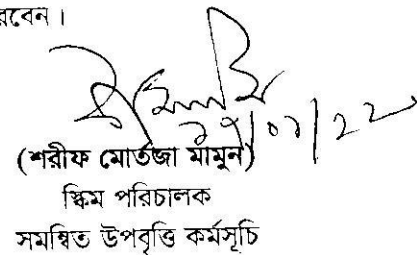 রবেন।
(শরীফ মোর্তজা মামুন)
স্কিম পরিচালক
সমন্বিত উপবৃত্তি কর্মসূচি